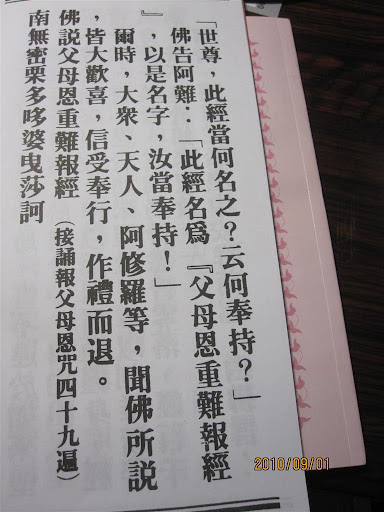 「世尊，此經當何名之？云何奉持？」
佛告阿難：「此經名為『父母恩重難報經
』，以是名字，汝當奉持！」
爾時，大眾、天人、阿修羅等，聞佛所說
，皆大歡喜，信受奉行，作禮而退。
佛說父母恩重難報經（接誦報父母恩咒四十九遍）
南無密栗多哆婆曳莎訶
2010/09/01